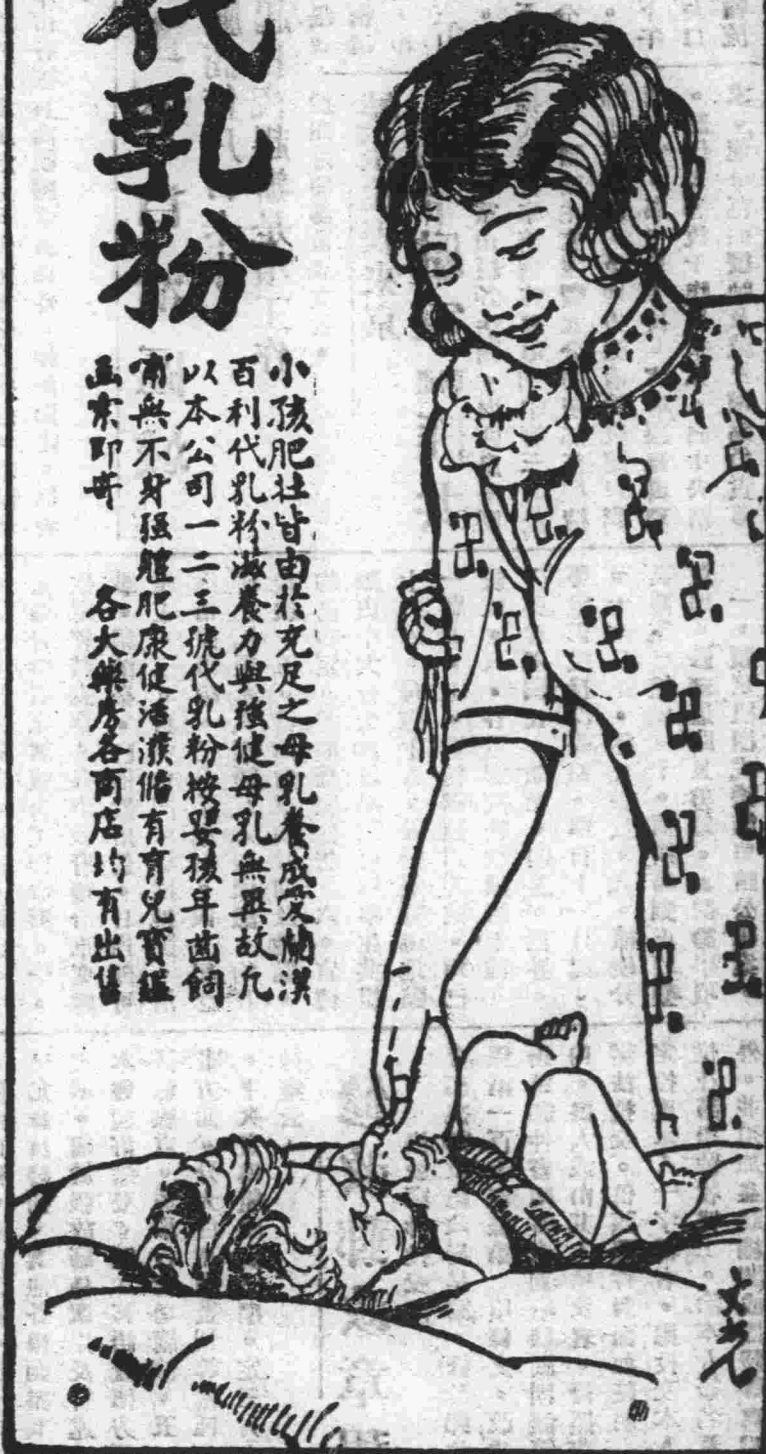 代乳粉
小孩肥壯皆由於充足之母乳養成愛蘭漢
百利代乳粉滋養力與強健母乳無異故凡
以本公司一二三號代乳粉按嬰孩年齒飼
哺無不身强體肥康健活潑備有育兒寶鑑
函索即寄 各大藥房各商店均有出售